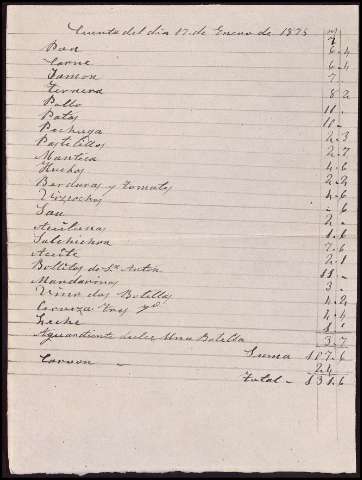 Cuenta del dia 17 de Enero de 1875
Pan 6 - 4
Carne 6 - 4
Jamon 7 -
Ternera 8 2
Pollo 11 -
Patos 10 -
Pechuga 2 - 3
Pastelillos 2 - 7
Manteca 4 - 6
Huebos 2 - 4
Berduras y tomates 4 - 6
- 6
2 -
Aceitunas 1 - 6
Salchichon 7 - 6
Aceite 2 - 1
Bollitos de Sn Anton 11 -
Mandarinas 3 -
Vino dos Botellas 4 - 4
Cerveza tres
Leche
Aguardiente dulce Una Botella 3 - 7
Suma 107 - 6
Carbon - 24
Total - 131 - 6